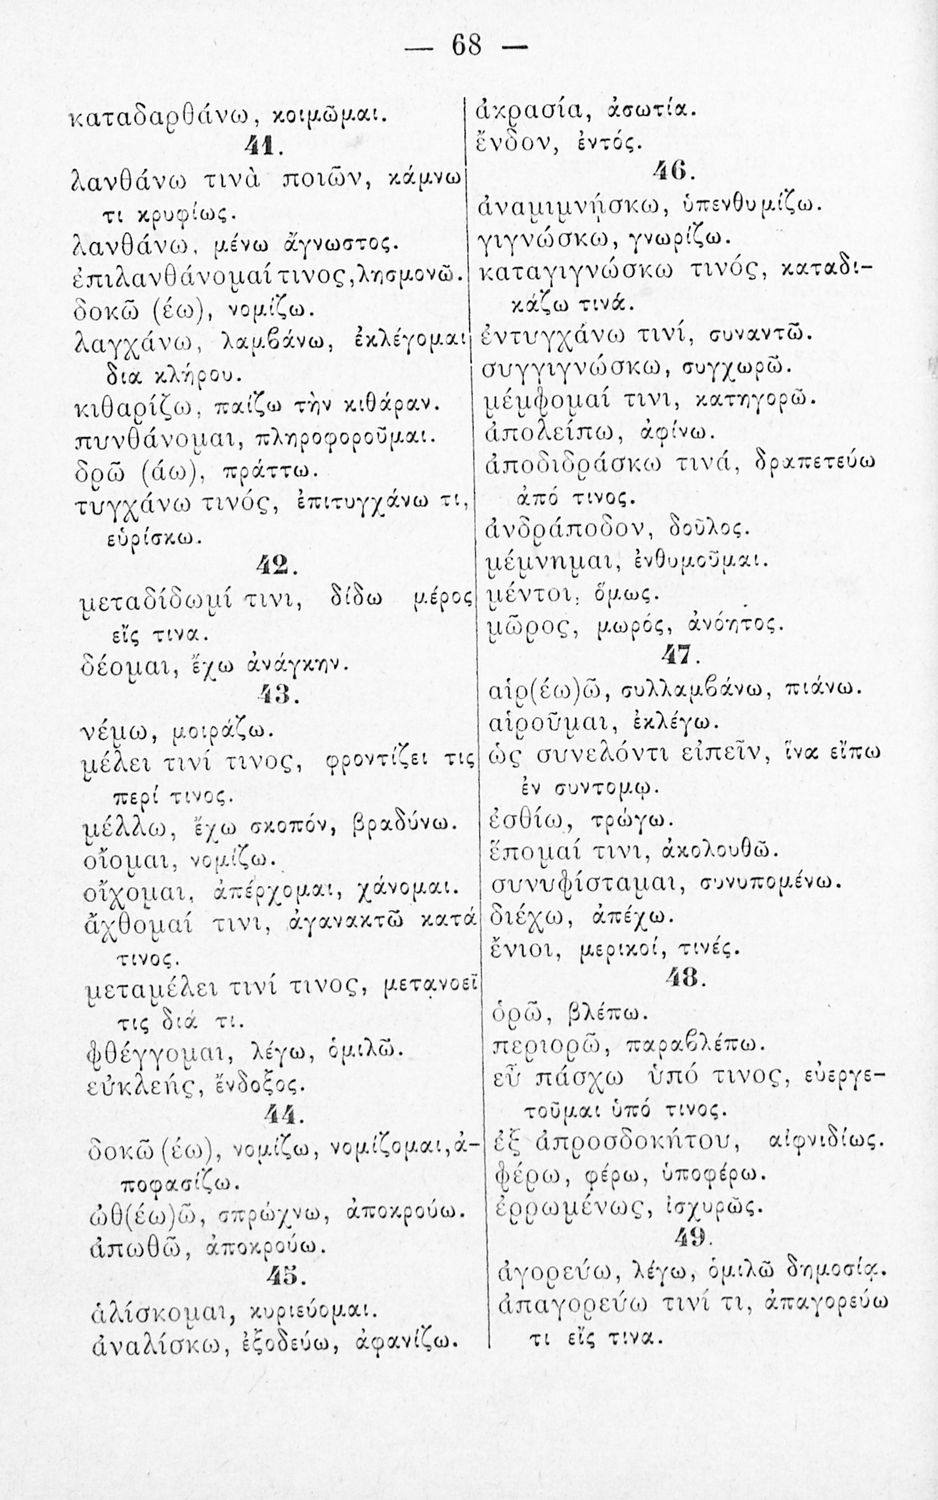 — 68 —
καταδαρθάνω, κοιμῶμαι.
41.
λανθάνω τινὰ ποιῶν, κάμνω
τι κρυφίως.
λανθάνω, μένω ἄγνωστος.
ἐπιλανθάνομαί τινος, λησμονῶ.
δοκῶ (έω), νομίζω.
λαγχάνω, λαμβάνω, ἐκλέγομαι
δια κλήρου.
κιθαρίζω, παίζω τὴν κιθάραν.
πυνθάνομαι, πληροφοροῦμαι.
δρῶ (άω), πράττω.
τυγχάνω τινός, ἐπιτυγχάνω τι,
εὑρίσκω.
42.
μεταδίδωμί τινι, δίδω μέρος
εἴς τινα.
δέομαι, ἔχω ἀνάγκην.
43.
νέμω, μοιράζω.
μέλει τινί τινος, φροντίζει τις
περί τινος.
μέλλω, ἔχω σκοπόν, βραδύνω.
οἴομαι, νομίζω.
οἴχομαι, ἀπέρχομαι, χάνομαι.
ἄχθομαί τινι, ἀγανακτῶ κατά
τινος.
μεταμέλει τινί τινος, μετανοεῖ
τις διά τι.
φθέγγομαι, λέγω, ὁμιλῶ.
εὐκλεής, ἔνδοξος.
44.
δοκῶ (έω), νομίζω, νομίζομαι, ἀ-
ποφασίζω.
ὠθ(έω)ῶ, σπρώχνω, ἀποκρούω.
ἀπωθῶ, ἀποκρούω.
45.
ἁλίσκομαι, κυριεύομαι.
ἀναλίσκω, ἐξοδεύω, ἀφανίζω.
ἀκρασία, ἀσωτία.
ἔνδον, ἐντός.
46.
ἀναμιμνήσκω, ὑπενθυμίζω.
γιγνώσκω, γνωρίζω.
καταγιγνώσκω τινός, καταδι-
κάζω τινά.
ἐντυγχάνω τινί, συναντῶ.
συγγιγνώσκω, συγχωρῶ.
μέμφομαί τινι, κατηγορῶ.
ἀπολείπω, ἀφίνω.
ἀποδιδράσκω τινά, δραπετεύω
ἀπό τινος.
ἀνδράποδον, δοῦλος.
μέμνημαι, ἐνθυμοῦμαι.
μέντοι, ὅμως.
μῶρος, μωρός, ἀνόητος.
47.
αἱρ(έω)ῶ, συλλαμβάνω, πιάνω.
αἱροῦμαι, ἐκλέγω.
ὡς συνελόντι εἰπεῖν, ἵνα εἴπω
ἐν συντομῳ.
ἐσθίω, τρώγω.
ἕπομαί τινι, ἀκολουθῶ.
συνυφίσταμαι, συνυπομένω.
διέχω, ἀπέχω.
ἔνιοι, μερικοί, τινές.
48.
ὁρῶ, βλέπω.
περιορῶ, παραβλέπω.
εὖ πάσχω ὑπό τινος, εὐεργε-
τοῦμαι ὑπό τινος.
ἐξ ἀπροσδοκήτου, αἰφνιδίως.
φέρω, φέρω, ὑποφέρω.
ἐρρωμένως, ἰσχυρῶς.
49.
ἀγορεύω, λέγω, ὁμιλῶ δημοσίᾳ.
ἀπαγορεύω τινί τι, ἀπαγορεύω
τι εἴς τινα.